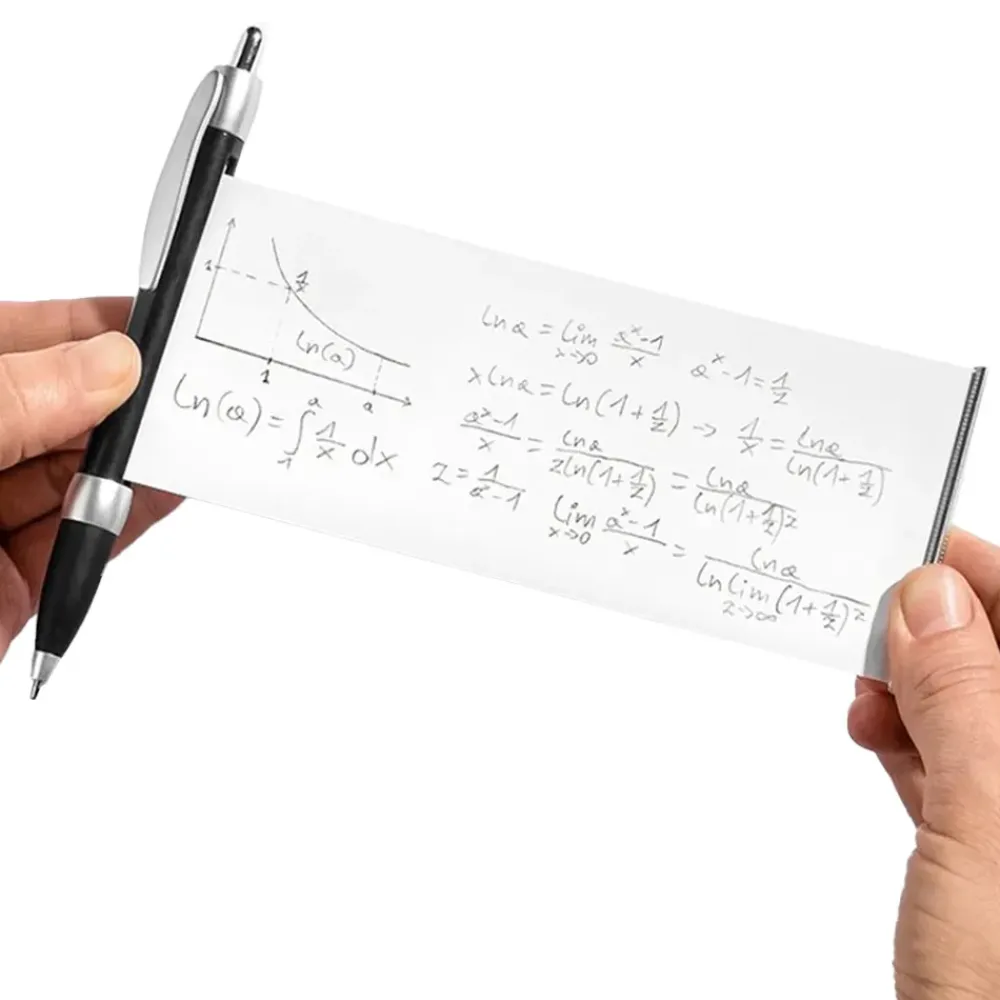 1
1/x
ln(a)
1
a
ln(a) = ∫₁ᵃ 1/x dx
ln a = lim x→0 (aˣ-1)/x   aˣ-1 = 1/z
x ln a = ln(1+1/z) → 1/x = ln a/ln(1+1/z)
(aˣ-1)/x = ln a/(z ln(1+1/z)) = ln a/ln(1+1/z)ᶻ
z = 1/(aˣ-1)
lim x→0 (aˣ-1)/x = ln a/(ln lim z→∞ (1+1/z)ᶻ)